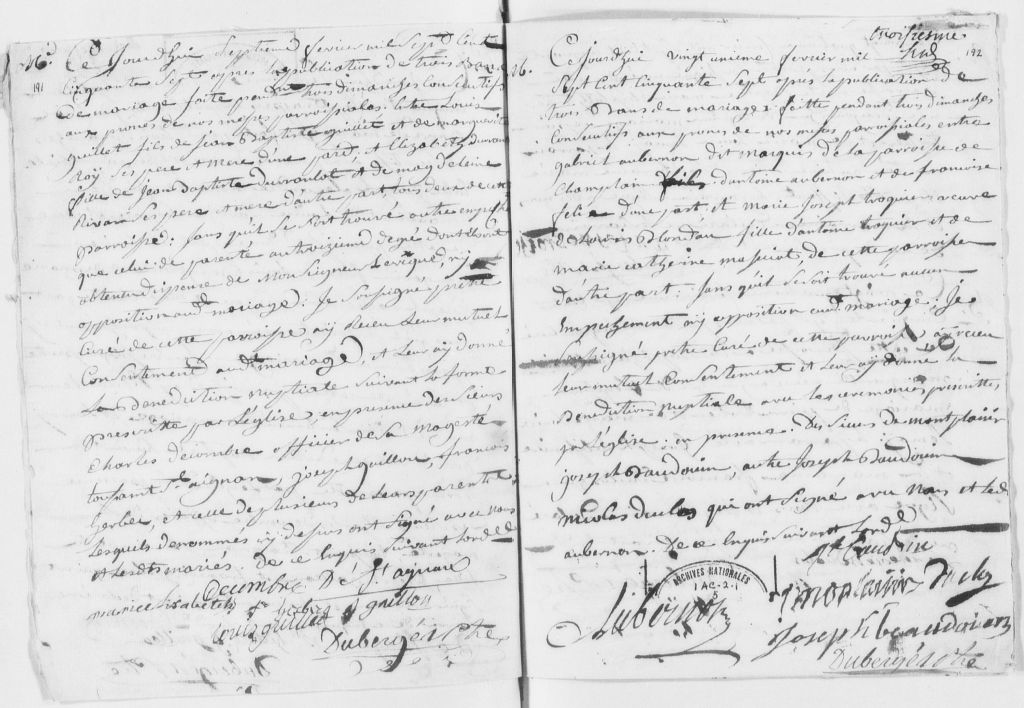 M. Ce Jourdhui Septieme fevrier mil Sept Cent
191
Cinquante Sept apres la publication de trois Bans
De mariage faite pendant trois dimanches Consecutifs
aux prones de nos messes parroissiales. Entre Louis
guillet fils de jean Baptiste guillet et de marguerite
Roy Ses pere et mere dune part, et Elizabeth
fille de Jean Baptiste et de magdeleine
Rivar Ses pere et mere dautre part, tous deux de cette
parroisse: Sans quil se soit trouvé autre empeschemt
que celui de parenté au troizieme degré dont ils ont
obtenu dispense de Monseigneur Levêque, ny
opposition audt mariage: Je Soussigné prêtre
Curé de cette parroisse ay Receu Leur mutuel
Consentement audt mariage, et Leur ay donné
La Benediction nuptiale Suivant la forme
prescritte par L'église, en presence des Sieurs
Charles decombre officier de Sa majesté
toussant St aignan, joseph guillon, francois
gerbet, et celle de plusieurs de Leurs parents
Lesquels denommés cy dessus ont Signé avec nous
et Lesdts mariés. de ce Enquis Suivant Lord
Decombre De St aignan
Louis guillet j guillon
Dubergés ptre
troisiesme
192
M. Ce Jourdhui vingt unieme fevrier mil
Sept Cent Cinquante Sept apres la publication de
trois Bans de mariage faitte pendant trois dimanches
Consecutifs aux prones de nos messes parroissiales entre
gabriel aubernon dit marquis de la parroisse de
Champlain fils dantoine aubernon et de francoise
felie d'une part, et Marie Joseph troquier veuve
de Louis Blondan fille dantoine troquier et de
marie catherine massicot de cette parroisse
dautre part: Sans quil Se Soit trouvé aucun
Empechement ny opposition audt mariage: Je
Soussigné pretre Curé de cette parroisse ay receu
leur mutuel Consentement et Leur ay donné la
Benediction Nuptiale avec les ceremonies prescrittes
par L'église: en presence Des Sieurs de montplaisir
joseph Baudouin, autre Joseph Baudouin
Nicolas duclos qui ont Signé avec Nous et Ledt
aubernon. De ce Enquis Suivant Lord
ARCHIVES NATIONALES
1 AC-2-1
5
Aubernon
Joseph beaudouin
Dubergés ptre